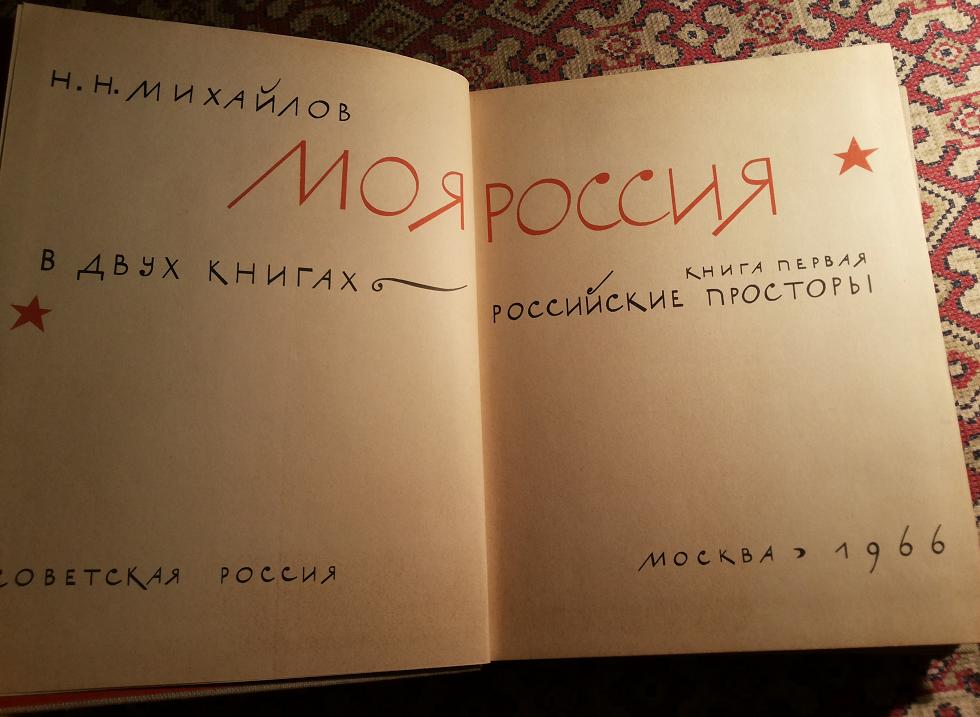 Н. Н. МИХАЙЛОВ
МОЯ РОССИЯ
В ДВУХ КНИГАХ
КНИГА ПЕРВАЯ
РОССИЙСКИЕ ПРОСТОРЫ
СОВЕТСКАЯ РОССИЯ
МОСКВА 1966